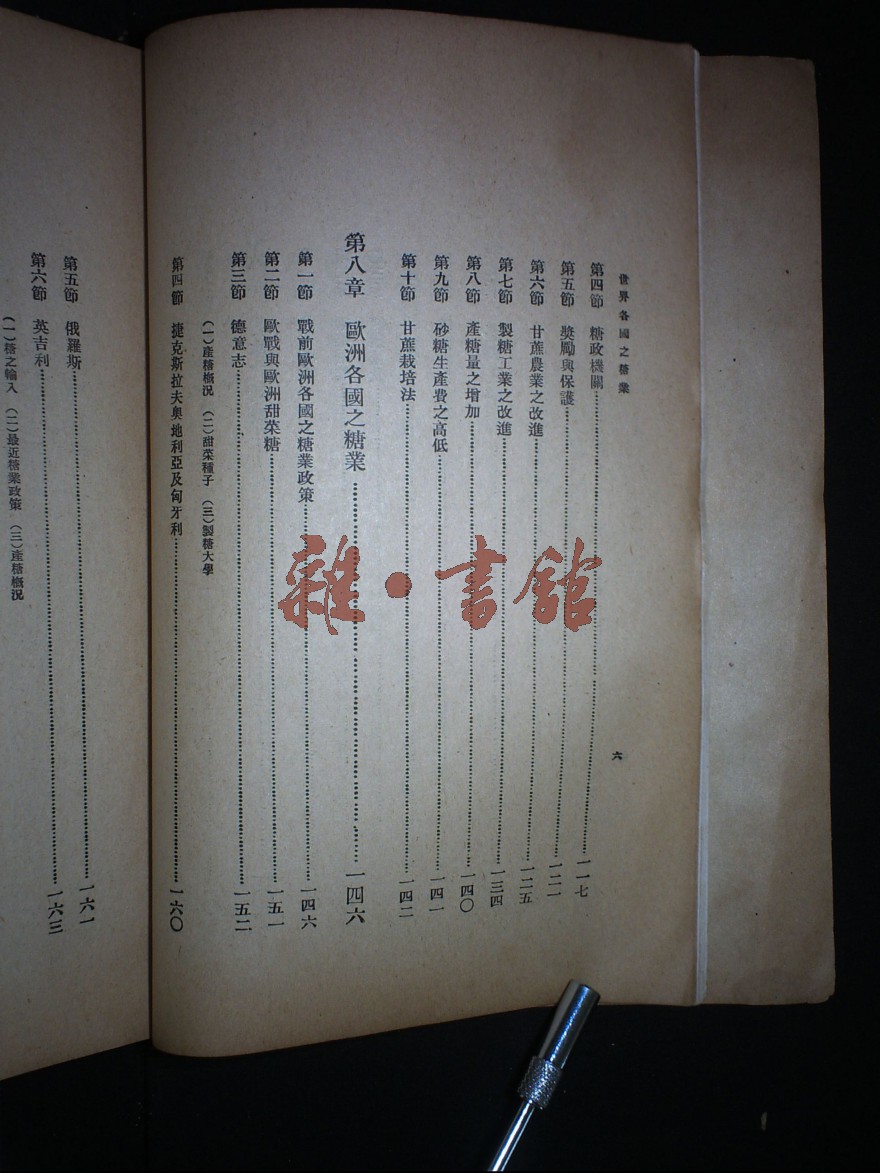 世界各國之糖業
第四節 糖政機關……一一七
第五節 獎勵與保護……一二一
第六節 甘蔗農業之改進……一二五
第七節 製糖工業之改進……一三四
第八節 產糖量之增加……一四〇
第九節 砂糖生產費之高低……一四一
第十節 甘蔗栽培法……一四二
第八章 歐洲各國之糖業……一四六
第一節 戰前歐洲各國之糖業政策……一四六
第二節 歐戰與歐洲甜菜糖……一五一
第三節 德意志……一五二
(一)產糖概況 (二)甜菜種子 (三)製糖大學
第四節 捷克斯拉夫奧地利亞及匈牙利……一六〇
六
第五節 俄羅斯……一六一
第六節 英吉利……一六三
(一)糖之輸入 (二)最近糖業政策 (三)產糖概況
雜·書館